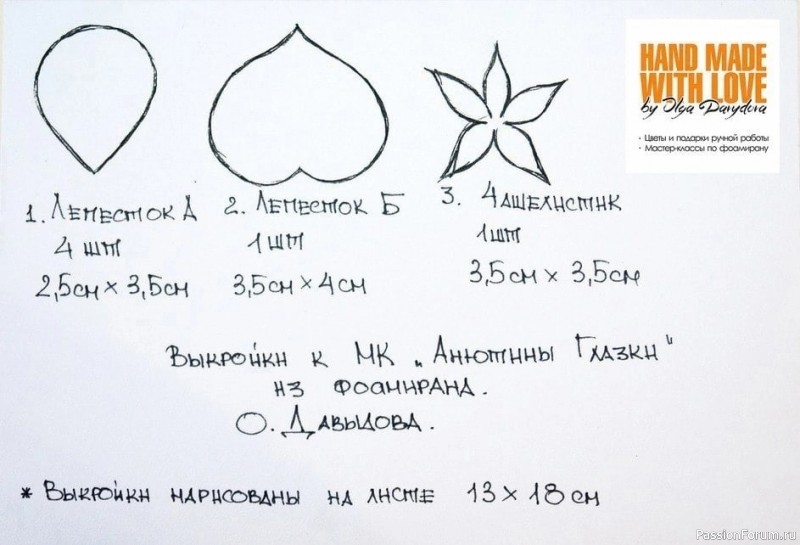 HAND MADE
WITH LOVE
by Olga Davydova
· Цветы и подарки ручной работы
· Мастер-классы по фоамирану
1. Лепесток А
4 шт
2,5см × 3,5см
2. Лепесток Б
1 шт
3,5см × 4см
3. Чашелистик
1шт
3,5см × 3,5см
Выкройки к МК „Анютины Глазки"
из фоамирана.
О. Давыдова.
* Выкройки нарисованы на листе 13 × 18 см
PassionForum.ru